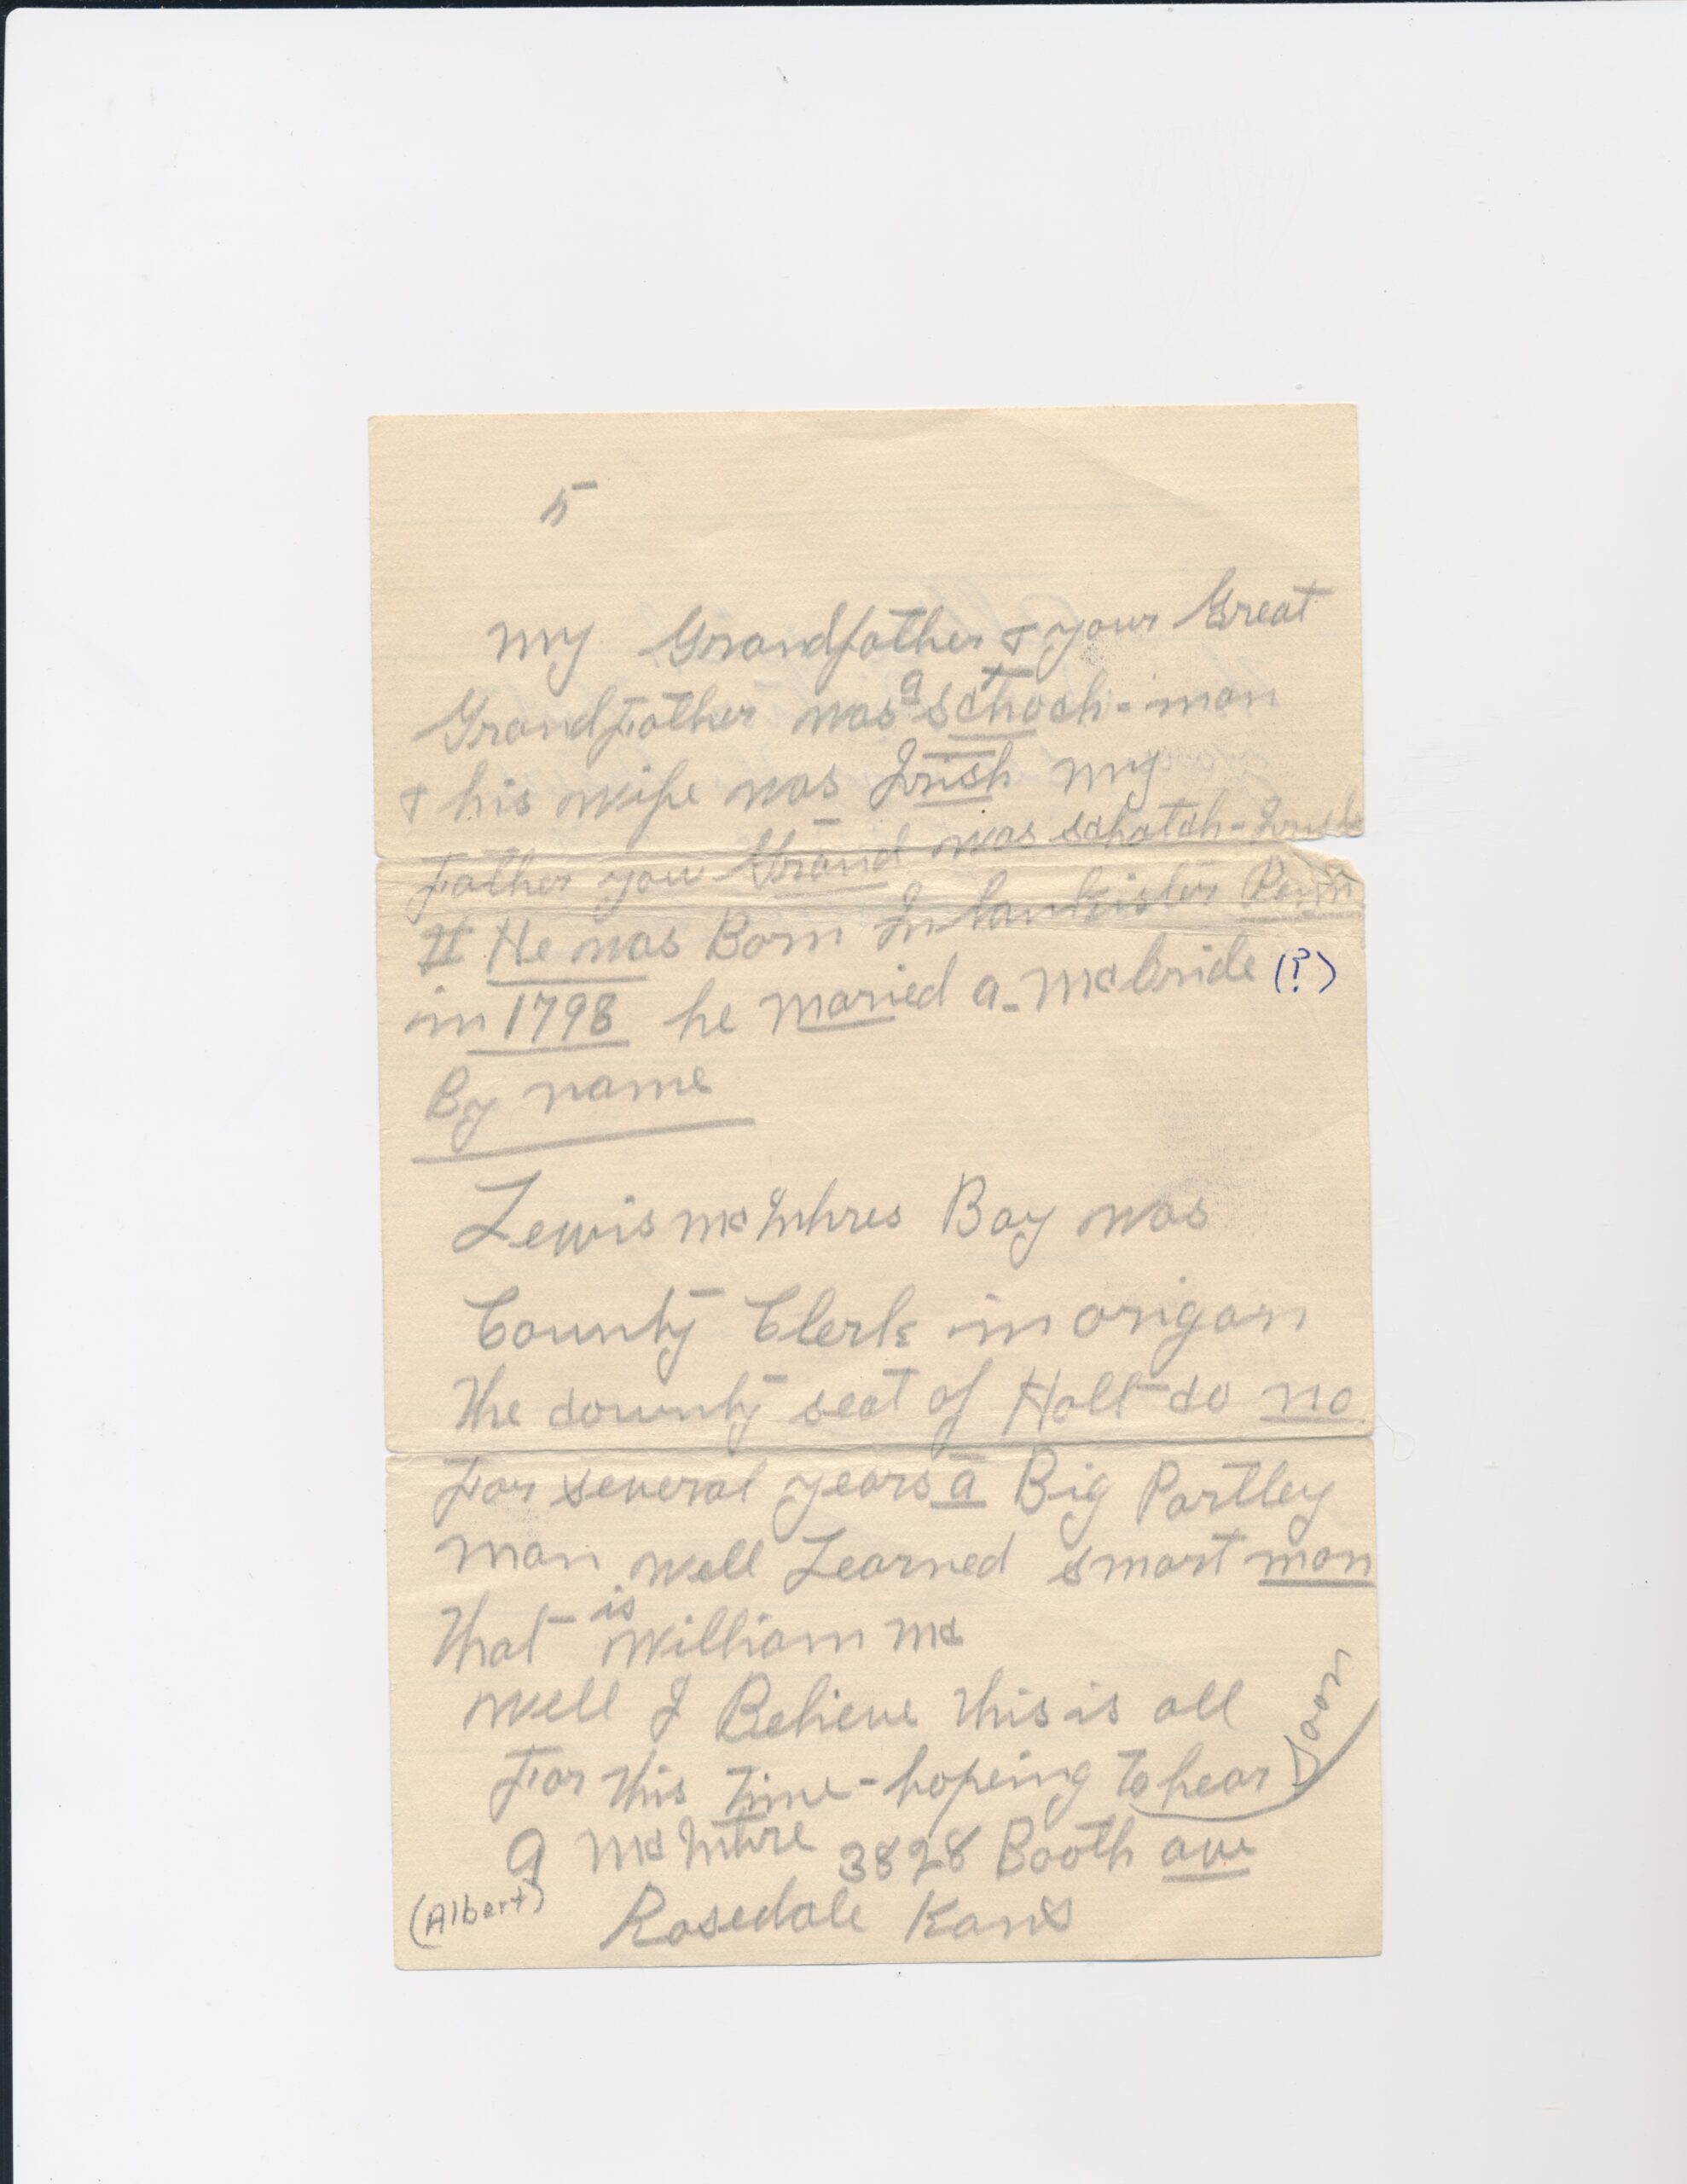 5
My Grandfather & your Great
Grandfather was a schoch-man
& his wife was Irish my
Father you Grand was schotch-Irish
He was Born In Lankister Penn
in 1798 he maried a-McBride (?)
By name
Lewis McInhres Boy was
County Clerk in origon
The county seat of Holt co mo
For several years a Big Portley
man well Learned smart man
That is William Mc
Well I Believe this is all
For this time-hopeing to hear soon
A McIntire 3828 Booth ave
(Albert) Rosedale Kans